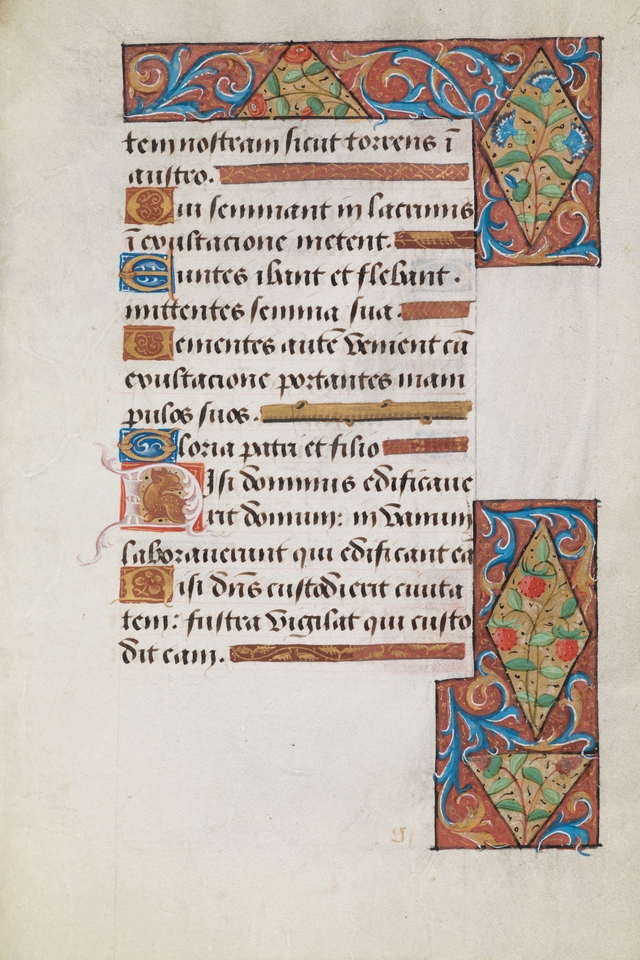 tem nostram sicut torrens ī
austro.
Qui seminant in lacrimis
ī exultacione metent.
Euntes ibant et flebant.
mittentes semina sua.
Uementes autē venient cū
exultacione portantes mani
pulos suos.
Gloria patri et filio
Nisi dominus edificaue
rit domum: in vanum
laborauerunt qui edificant eā
Nisi dn̄s custodierit ciuita
tem: frustra vigilat qui custo
dit eam.